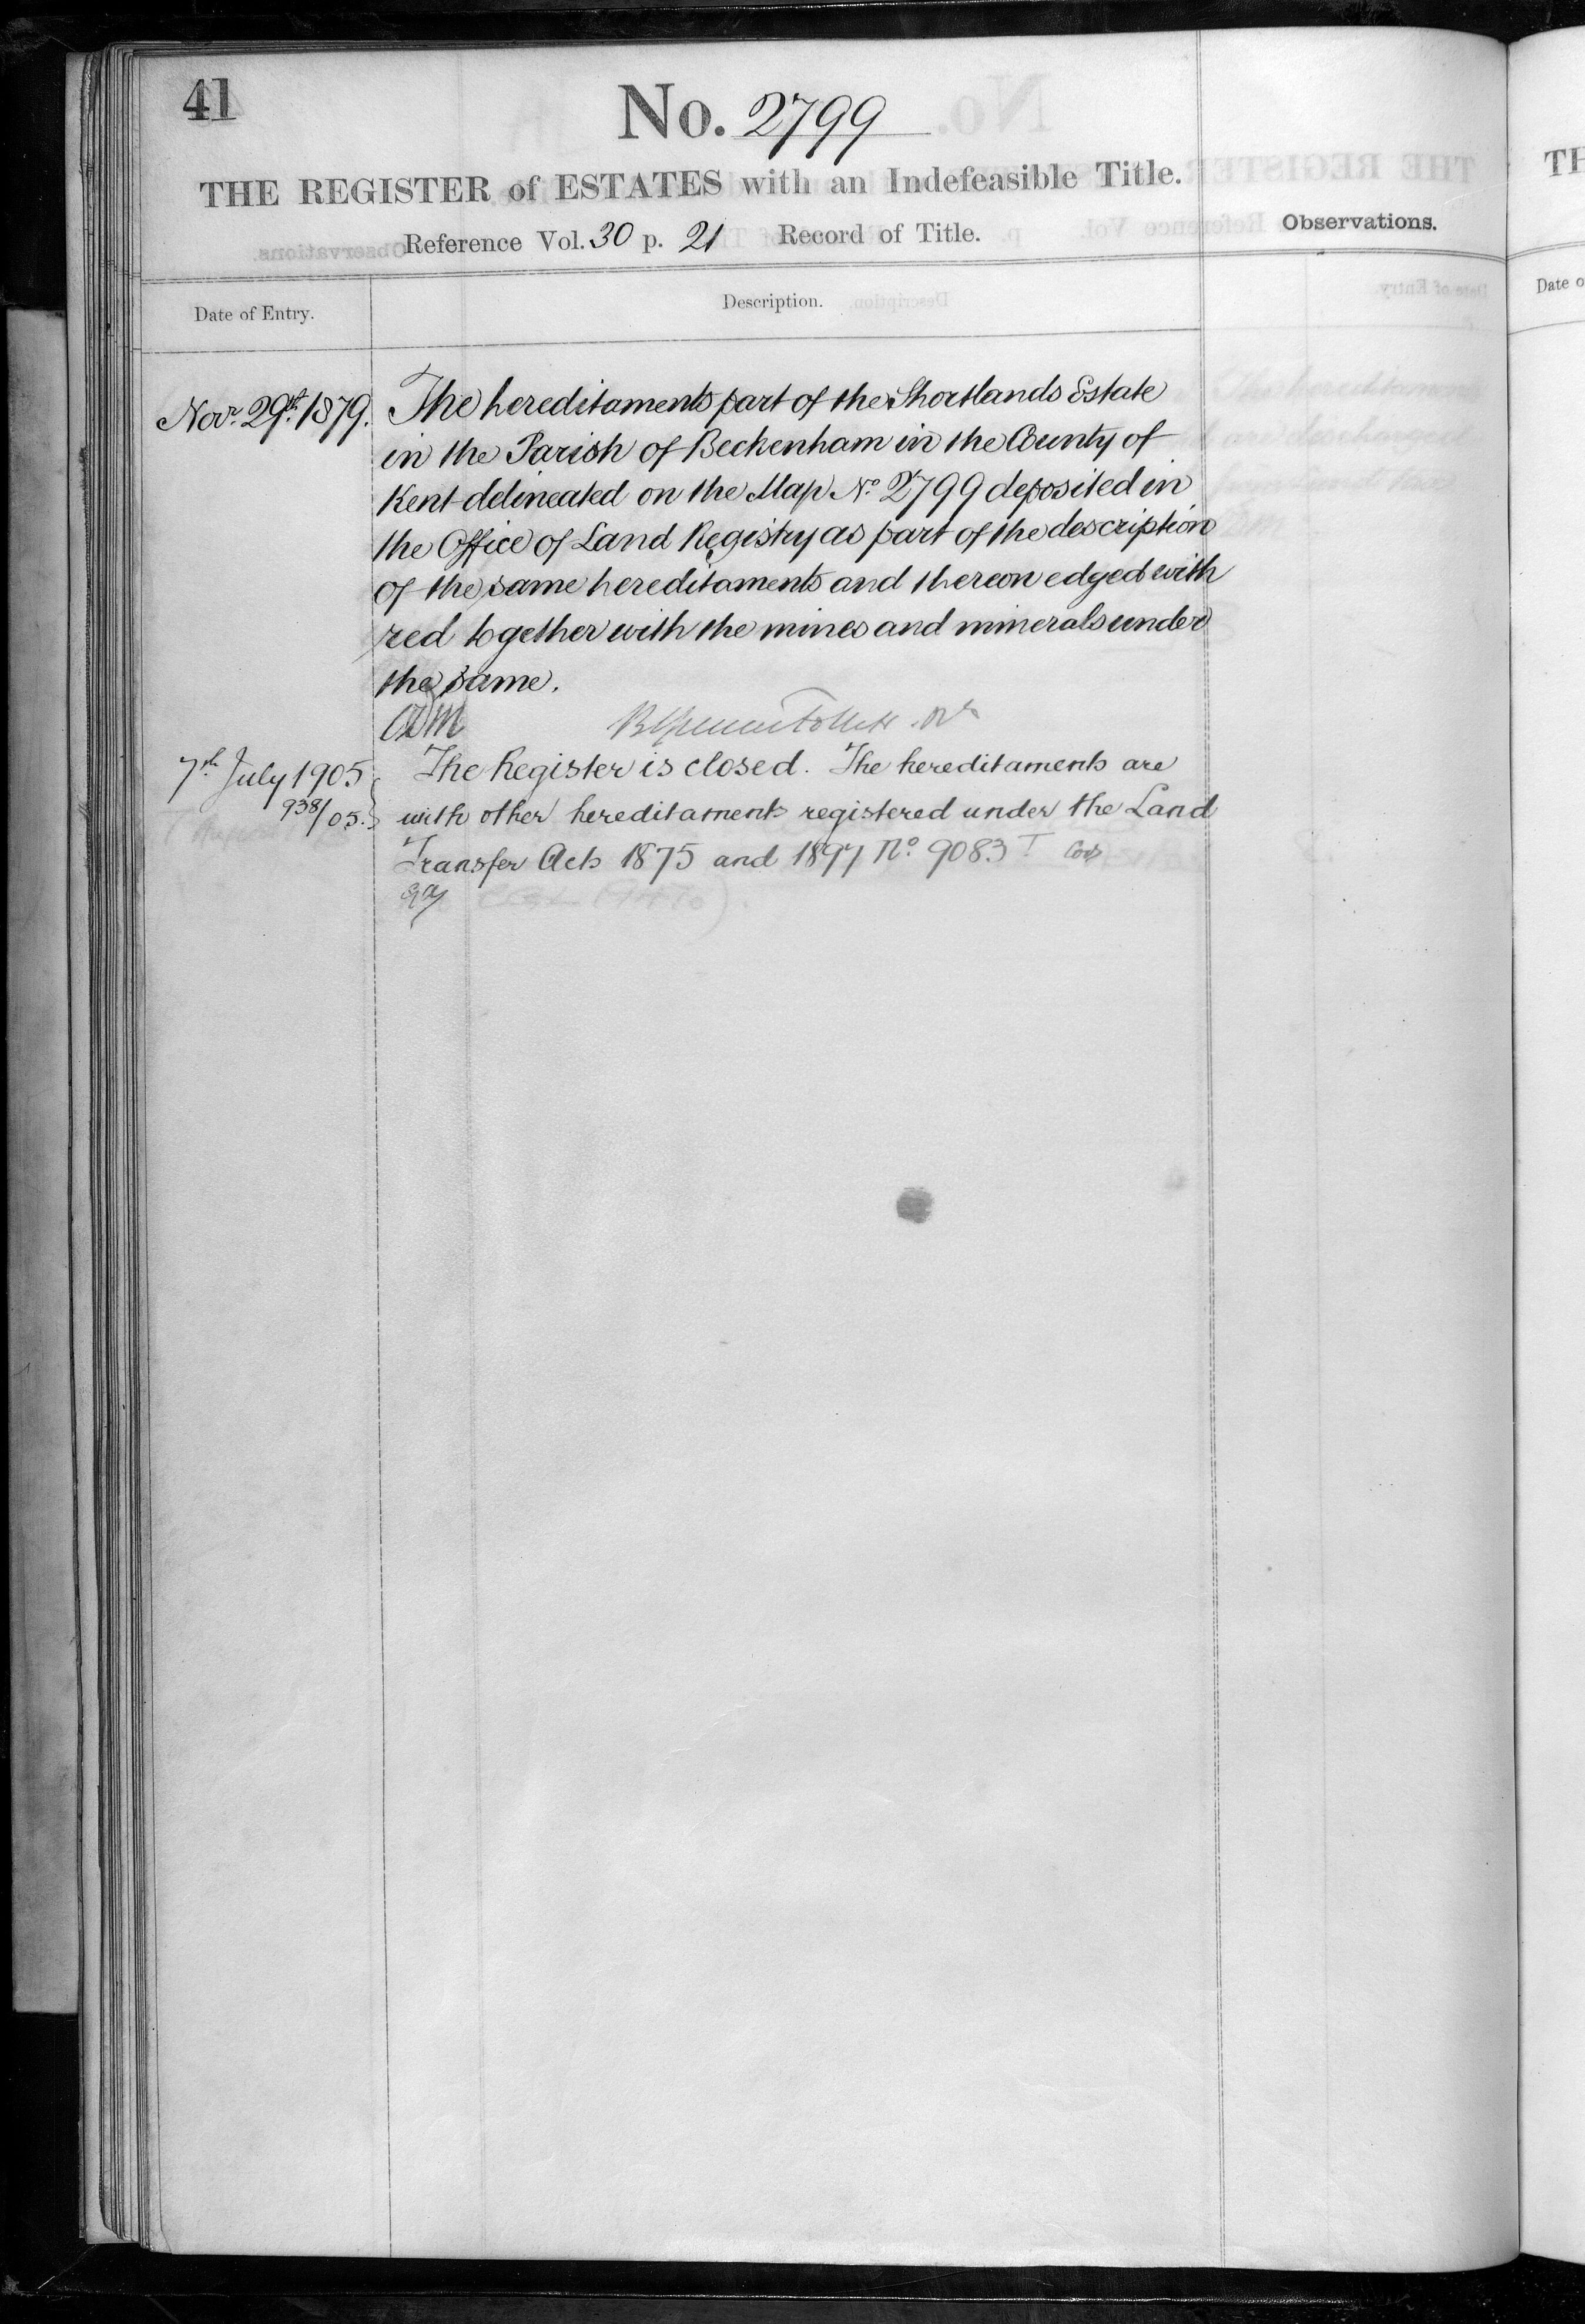 41
No. 2799
THE REGISTER of ESTATES with an Indefeasible Title.
Reference Vol. 30 p. 21 Record of Title.
Observations.
Date of Entry.
Description.
Novr. 29th. 1879.
The hereditaments part of the Shortlands Estate
in the Parish of Beckenham in the County of
Kent delineated on the Map No. 2799 deposited in
the Office of Land Registry as part of the description
of the same hereditaments and thereon edged with
red together with the mines and minerals under
the same.
7th July 1905
938/05.
The Register is closed. The hereditaments are
with other hereditaments registered under the Land
Transfer Acts 1875 and 1897 No. 9083
TH
Date o